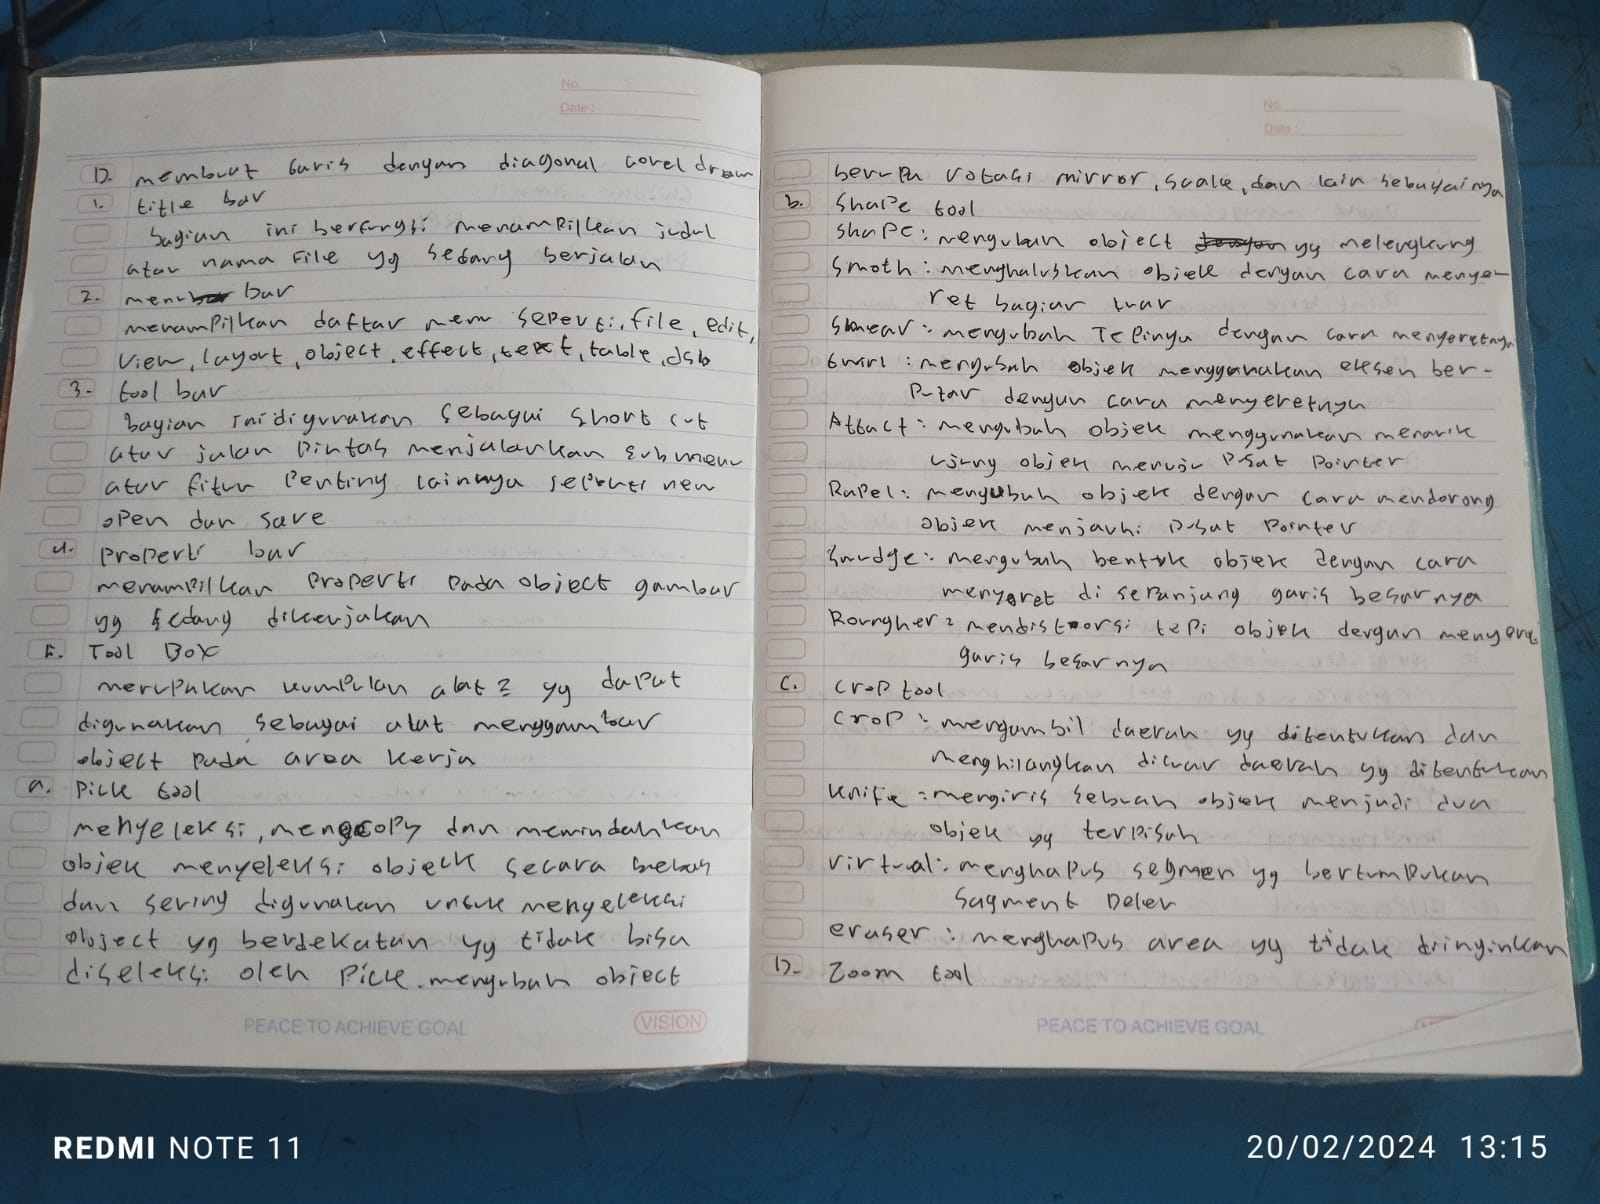 No.
Date :
D. membuat garis dengan diagonal corel draw
1. title bar
bagian ini berfungsi menampilkan judul
atau nama file yg sedang berjalan
2. menu bar
menampilkan daftar menu seperti, file, edit,
view, layout, object, effect, text, table, dsb
3. tool bar
bagian ini digunakan sebagai short cut
atau jalan pintas menjalankan submenu
atau fitur penting lainnya seperti new
open dan save
4. properti bar
menampilkan properti pada object gambar
yg sedang dikerjakan
E. Tool Box
merupakan kumpulan alat2 yg dapat
digunakan sebagai alat menggambar
object pada area kerja
a. Pick tool
menyeleksi, mengcopy dan memindahkan
objek menyeleksi objeck secara bebas
dan sering digunakan untuk menyeleksi
object yg berdekatan yg tidak bisa
diseleksi oleh Pick. mengubah object
PEACE TO ACHIEVE GOAL
VISION
No
Date :
berupa rotasi mirror, scale, dan lain sebagainya
b. Shape tool
Shape : mengubah object yg melengkung
Smoth : menghaluskan objek dengan cara menye-
ret bagian luar
Smear : mengubah Tepinya dengan cara menyeretnya
twirl : mengubah objek menggunakan efesen ber-
putar dengan cara menyeretnya
Attact : mengubah objek menggunakan menarik
ujung objek menuju pusat pointer
Rapel : mengubah objek dengan cara mendorong
objek menjauhi pusat pointer
Smudge : mengubah bentuk objek dengan cara
menyeret di sepanjang garis besarnya
Rorngher : mendistorsi tepi objek dengan menyeret
garis besarnya
C. crop tool
crop : mengambil daerah yg ditentukan dan
menghilangkan diluar daerah yg ditentukan
knife : mengiris sebuah objek menjadi dua
objek yg terpisah
virtual : menghapus segmen yg bertumpukan
Sagment Deler
eraser : menghapus area yg tidak diinginkan
D. Zoom tool
PEACE TO ACHIEVE GOAL
REDMI NOTE 11
20/02/2024 13:15